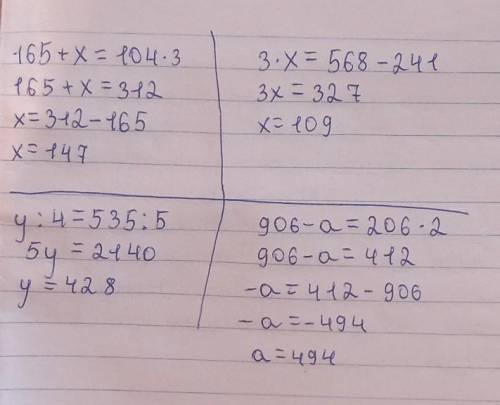 165+x=104·3
165+x=312
x=312-165
x=147
3·x=568-241
3x=327
x=109
y:4=535:5
5y=2140
y=428
906-a=206·2
906-a=412
-a=412-906
-a=-494
a=494